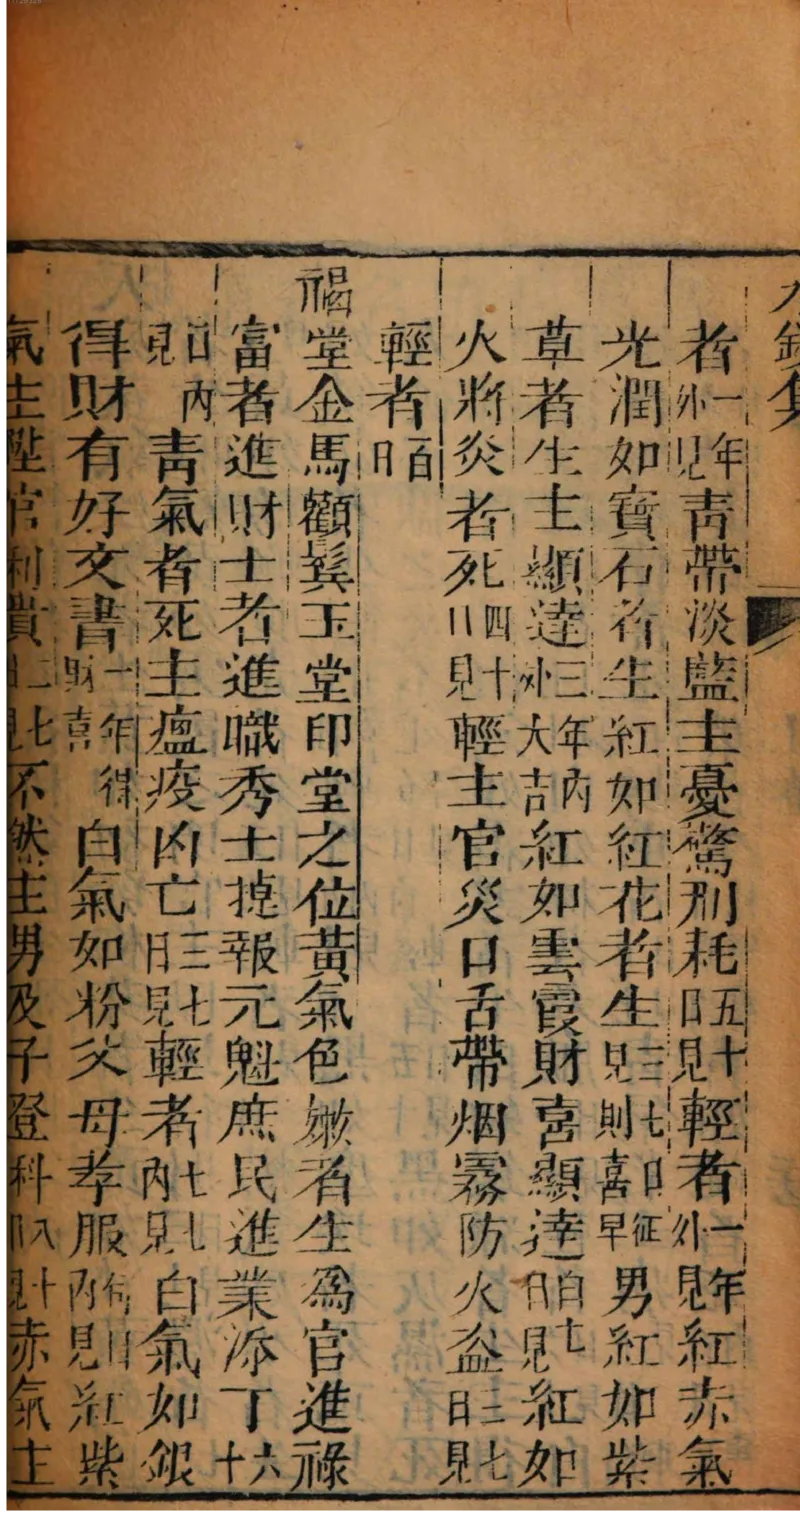 者一年外見青帶淡藍主憂驚刑耗五十日見輕者一年外見紅赤氣
光潤如寶石者生紅如紅花者生三七日見則喜征早男紅如紫
草者生主顯達三年外內大吉紅如雲霞財喜顯達白七日見紅如
火將炎者死四十日見輕主官災口舌帶烟霧防火盗三七日見
輕者百日
福堂金馬顴鬂玉堂印堂之位黃氣色嫩者生為官進祿
富者進財士者進職秀士捷報元魁庶民進業添丁六十
日內見青氣者死主瘟疫凶亡三七日見輕者七七內見白氣如銀
得財有好文書一年得財喜白氣如粉父母孝服旬日內見紅紫
氣主陞官利貴仁比不然主男及子登科八十日見赤氣主